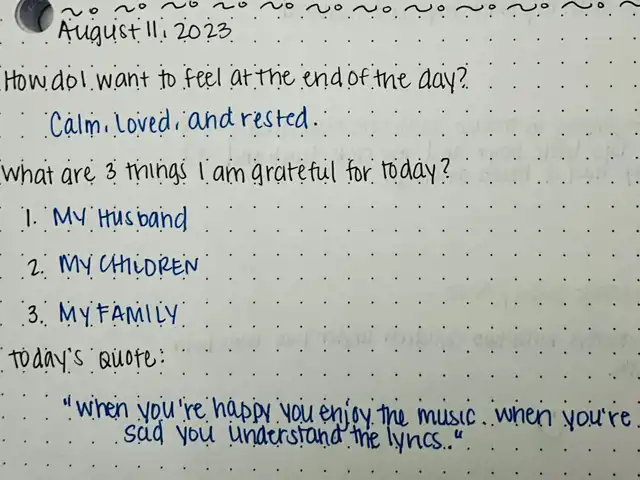 August 11, 2023
How do I want to feel at the end of the day?
Calm, loved, and rested.
What are 3 things I am grateful for today?
1. MY Husband
2. MY CHILDREN
3. MY FAMILY
Today's Quote:
"When you're happy you enjoy the music. When you're
sad you understand the lyrcs."